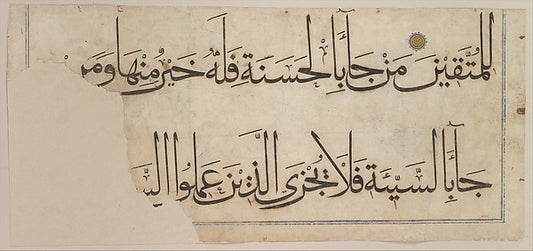 للمُتَّقِينَ مَن جَآءَ بِالحَسَنَةِ فَلَهُ خَيرٌ مِنهَا وَمَن
جَآءَ بِالسَّيِّئَةِ فَلَا يُجزَى الَّذِينَ عَمِلُوا